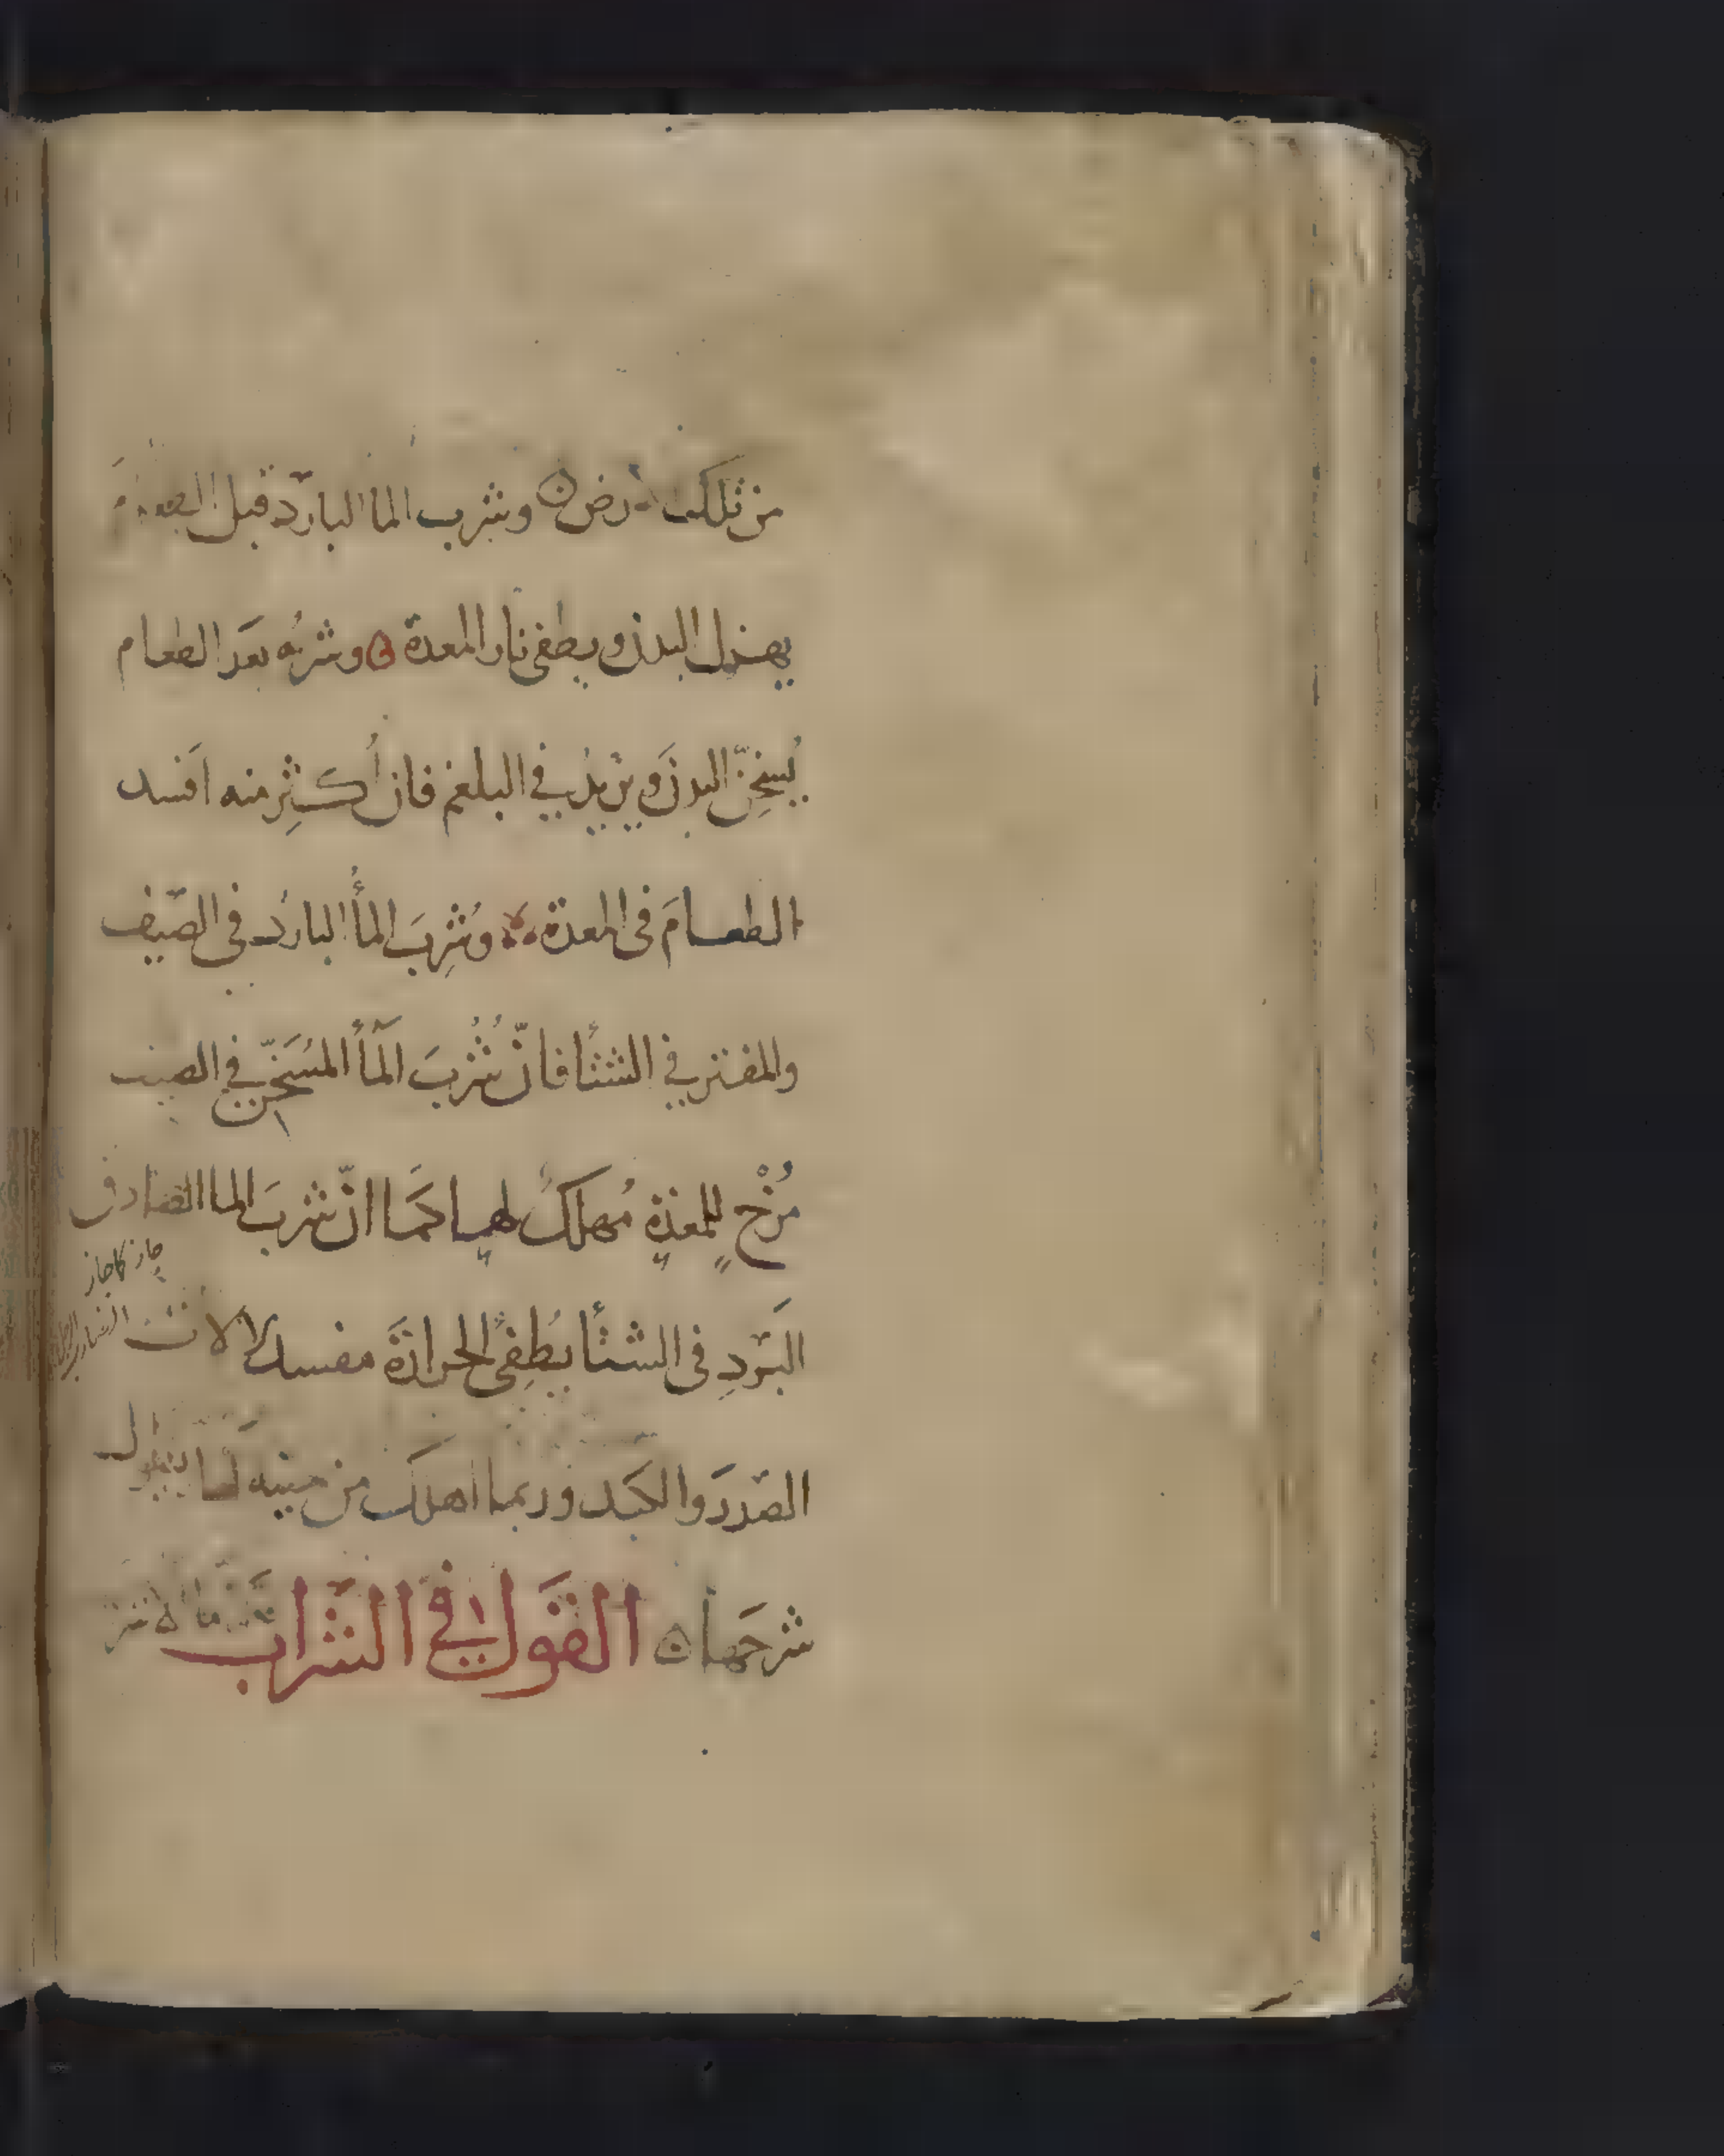 من تلك الارض وشرب الما البارد قبل الطعام
يهزل البدن ويطفى نار المعدة وشربه بعد الطعام
يُسخِنّ البدن ويزيدُ في البلغم فان أُكثِر منه افسد
الطعامَ فى المعدة وشُرِبَ المأُ الباردُ في الصيف
والمفتر في الشتأ فانّ شُرْبَ المآءُ المُسَخَّن في الصيف
مُرْخٍ للمعدةِ مُهلكٌ لها كما انّ شربَ الما الصادق
البَرْدِ فى الشتأ يُطفِئُ الحرارة مفسد لالات
الصدرَ والكبد وربما اهلك من حينه لما يطول
شرحها القول في الشراب